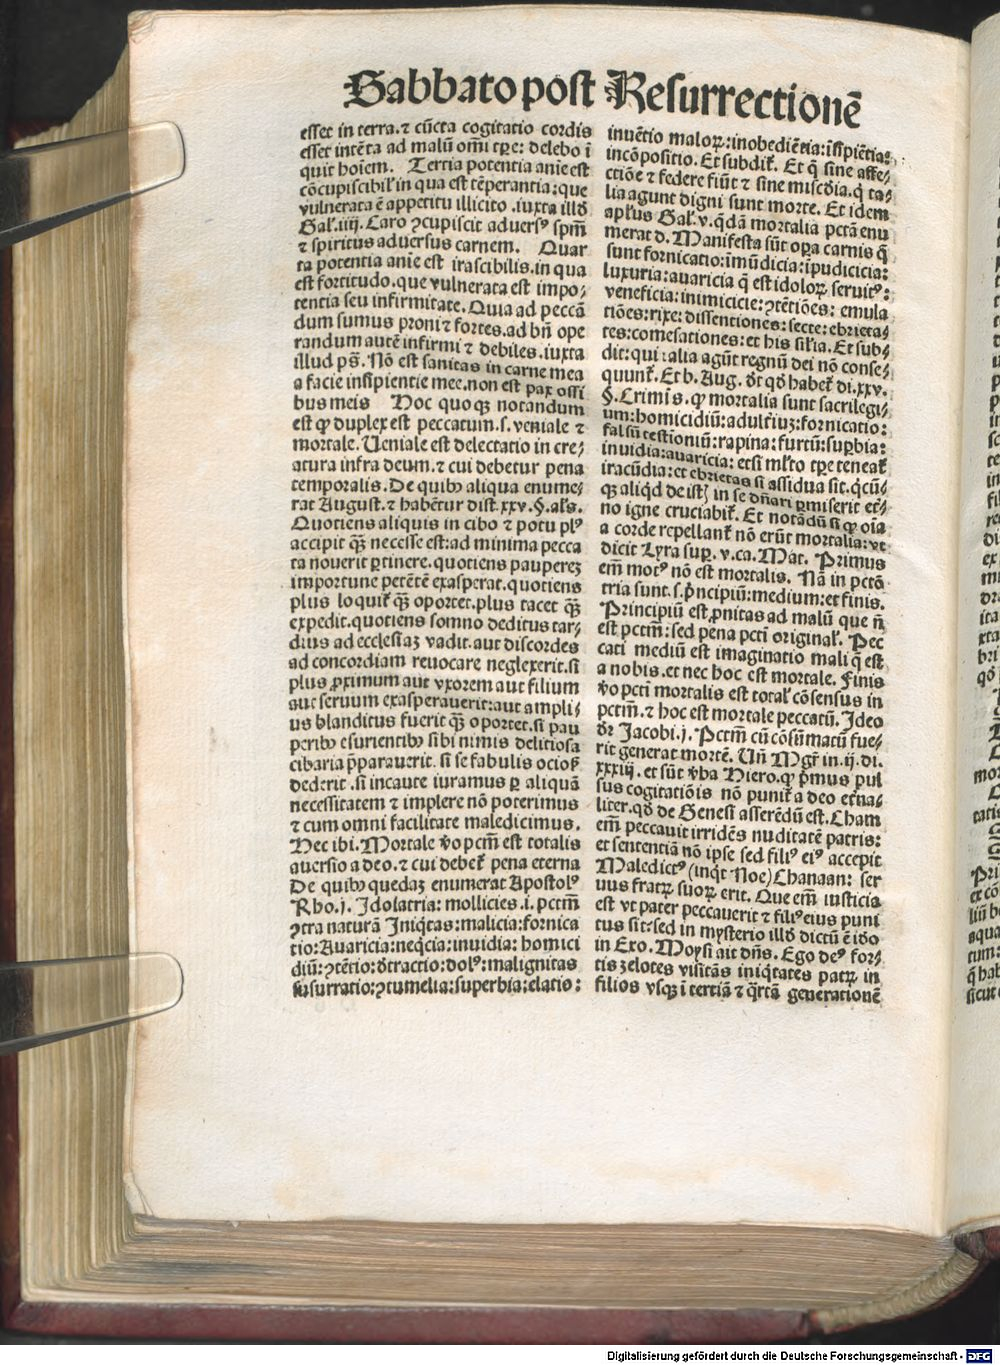 Sabbato post Resurrectionē
esset in terra.⁊ cūcta cogitatio cordis
esset intēta ad malū omi tꝑe: delebo ī
quit hoīem. Tertia potentia anīe est
cōcupiscibil' in qua est tēperantia:que
vulnerata ē appetitu illicito .iuxta illđ
Gal'.iiij. Caro ꝯcupiscit aduersꝰ spm̄
⁊ spiritus aduersus carnem. Quar
ta potentia anīe est irascibilis.in qua
est fortitudo.que vulnerata est impo⸗
tentia seu infirmitate. Quia ad peccā
dum sumus proni ⁊ fortes.ad bn̄ ope
randum autē infirmi ⁊ debiles.iuxta
illud ps̄. Nō est sanitas in carne mea
a facie insipientie mee.non est pax ossi
bus meis Hoc quoqꝫ notandum
est ꝙ duplex est peccatum.s. veniale ⁊
mortale. Ueniale est delectatio in cre⸗
atura infra deum.⁊ cui debetur pena
temporalis. De quibꝰ aliqua enume⸗
rat August. ⁊ habētur dist.xxv.§.als̄.
Quotiens aliquis in cibo ⁊ potu plꝰ
accipit qꝫ̄ necesse est:ad minima pecca
ta nouerit ꝑtinere.quotiens paupereꝫ
importune petētē exasperat.quotiens
plus loquit' qꝫ̄ oportet.plus tacet qꝫ̄
expedit.quotiens somno deditus tar⸗
dius ad ecclesiaꝫ vadit.aut discordes
ad concordiam reuocare neglexerit.si
plus ꝓximum aut vxorem aut filium
aut seruum exasperauerit:aut ampli⸗
us blanditus fuerit qꝫ̄ oportet.si pau
peribꝰ esurientibꝰ sibi nimis delitiosa
cibaria p̄parauerit. si se fabulis ociosꝭ
dederit .si incaute iuramus ꝑ aliquā
necessitatem ⁊ implere nō poterimus
⁊ cum omni facilitate maledicimus.
Hec ibi. Mortale v̄o pctm̄ est totalis
auersio a deo.⁊ cui debet' pena eterna
De quibꝰ quedaꝫ enumerat Apostolꝰ
Rho.j. Idolatria: mollicies.i. pctm̄
ꝯtra naturā Iniq̄tas:malicia:fornica
tio:Auaricia:neq̄cia:inuidia: homici
diū:ꝯtētio:đtractio:dolꝰ:malignitas
susurratio:ꝯtumelia:superbia:elatio:
inuētio maloꝝ:inobediētia:īsipiētia:
incōpositio. Et subdit'. Et q̄ sine affe⸗
ctiōe ⁊ federe fiūt ⁊ sine mis̄cđia.q̄ ta⸗
lia agunt digni sunt morte. Et idem
apl'us Gal'.v.q̄dā mortalia pctā enu
merat đ. Manifesta sūt oꝑa carnis q̄
sunt fornicatio:īmūdicia:īpudicicia:
luxuria:auaricia q̄ est idoloꝝ seruitꝰ:
veneficia:inimicicie:ꝯtētiōes: emula
tiōes:rixe:dissentiones:secte:ebrieta⸗
tes:comesationes:et his sīl'ia. Et sub⸗
dit:qui talia agūt regnū dei nō conse⸗
quunt'. Et b. Aug. đt qđ habet' di.xxv.
§.Crimīs.ꝙ mortalia sunt sacrilegi⸗
um:homicidiū:adult'iuꝫ:fornicatio:
falsū testioniū:rapina:furtū:suꝑbia:
inuidia:auaricia: etsi ml'to tꝑe teneat'
iracūdia:et ebrietas si assidua sit.q̄cū⸗
qꝫ aliq̄d de istꝭ in se dn̄ari ꝑmiserit et'⸗
no igne cruciabit'. Et notādū si ꝙ oīa
a corde repellant' nō erūt mortalia:vt
dicit Lyra suꝑ. v.ca.Mat. Primus
em̄ motꝰ nō est mortalis. Nā in pctō
tria sunt.s.p̄ncipiū:medium:et finis.
Principiū est ꝓnitas ad malū que n̄
est pctm̄:sed pena pcti original'. Pec
cati mediū est imaginatio mali q̄ est
a nobis.et nec hoc est mortale. Finis
v̄o pcti mortalis est total' cōsensus in
pctm̄.⁊ hoc est mortale peccatū. Ideo
đr Jacobi.j. Pctm̄ cū cōsūmatū fue⸗
rit generat mortē. Un̄ Mgr̄ in.ij.di.
xxxiij.et sūt v̄ba Hiero.ꝙ p̄mus pul
sus cogitatiōis nō punit' a deo et'na⸗
liter.qđ de Genesi asserēdū est. Cham
em̄ peccauit irridēs nuditatē patris:
et sententiā nō ipse sed filiꝰ eiꝰ accepit
Maledictꝰ (inq̄t Noe)Chanaan: ser
uus fratꝝ suoꝝ erit. Que em̄ iusticia
est vt pater peccauerit ⁊ filiꝰ eius puni
tus sit:sed in mysterio illđ dictū ē iđo
in Exo. Moysi ait dn̄s. Ego deꝰ for⸗
tis zelotes visitās iniq̄tates patꝝ in
filios vsqꝫ ī tertiā ⁊ q̄rtā generationē
Digitalisierung gefördert durch die Deutsche Forschungsgemeinschaft - DFG